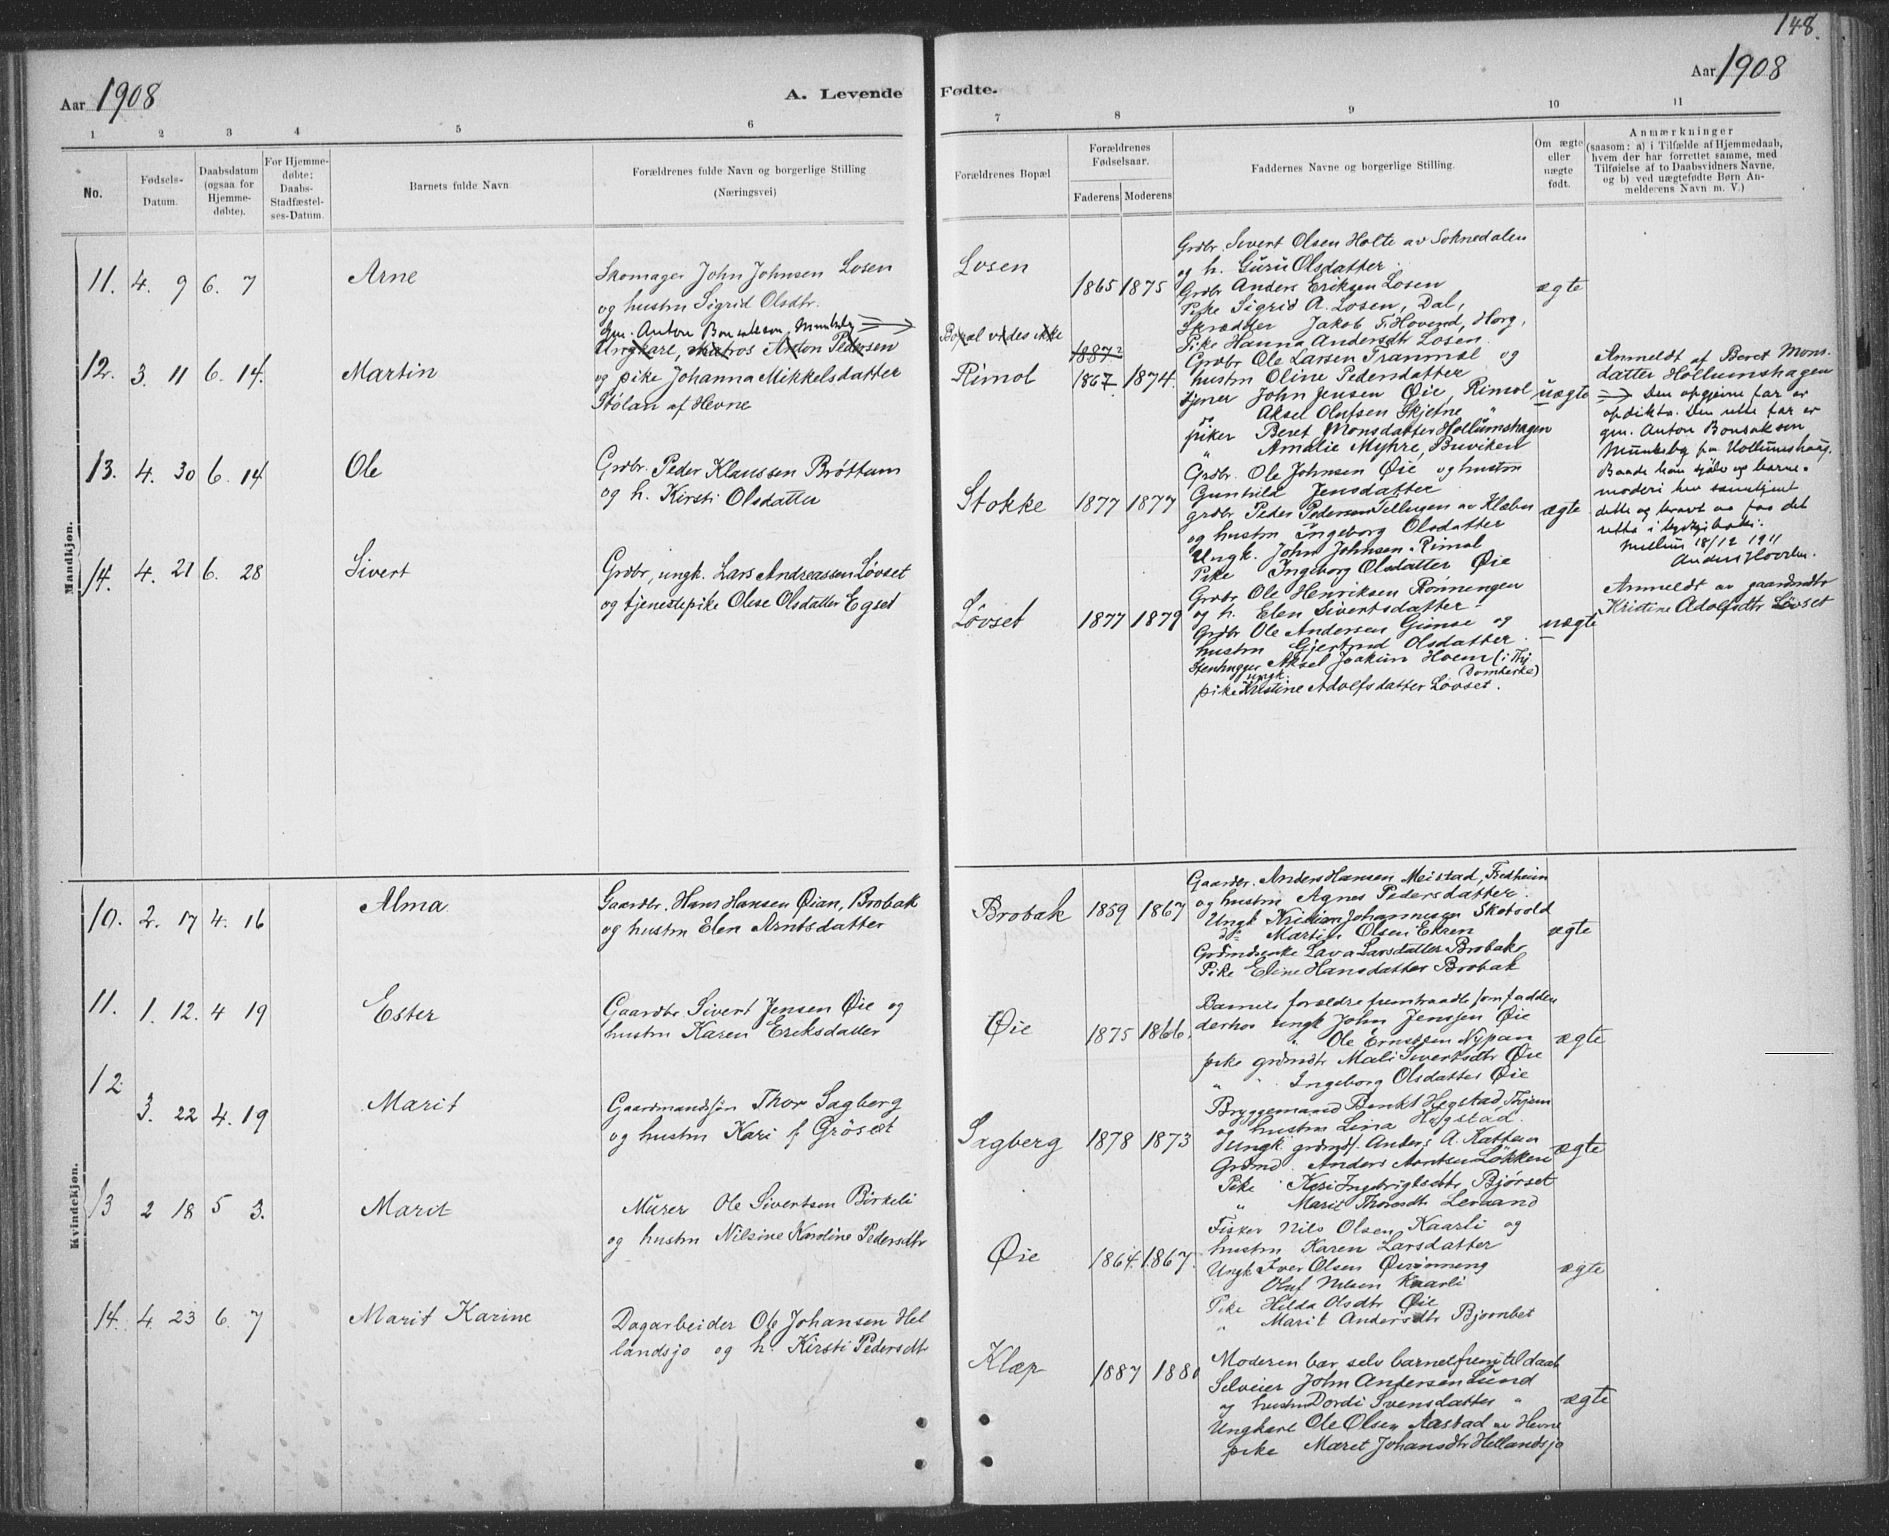 148.
Aar 1908
A. Levende Fødte.
Aar 1908
1 2 3 4 5 6 7 8 9 10 11
No.
Fødsels-Datum.
Daabsdatum (ogsaa for Hjemmedøbte).
For Hjemmedøbte: Daabs-Stadfæstelses-Datum.
Barnets fulde Navn
Forældrenes fulde Navn og borgerlige Stilling (Næringsvei)
Forældrenes Bopæl.
Forældrenes Fødselsaar.
Faderens Moderens
Faddernes Navne og borgerlige Stilling.
Om ægte eller uægte født.
Anmærkninger
(saasom: a) i Tilfælde af Hjemmedaab,
hvem der har forrettet samme, med
Tilføielse af to Daabsvidners Navne,
og b) ved uægtefødte Børn An-
melderens Navn m. V.)
Mandkjøn.
11. 4. 9 6. 7
Arne
Skomager John Johnsen Losen
og hustru Sigrid Olsdtr.
Losen
1865 1875
Grdbr. Sivert Olsen Holte av Soknedalen
og h. Guru Olsdatter.
Grdbr Anders Eriksen Losen
Pike Sigrid A. Losen, Dal,
Skrædder Jakob T. Hovend, Horg,
Pike Hanna Andersdtr Losen.
ægte
12. 3. 11 6. 14.
Martin
Gm. Anton Bonsaksen Munkeby
Ungkare, matros Anton Pedersen
og pike Johanna Mikkelsdatter
Stølan af Hevne
Bopæl vides ikke
Rimol
1887?
1867. 1874.
Grdbr Ole Larsen Tranmæl og
hustru Oline Pedersdatter
tjener John Jensen Øie, Rimol
Aksel Olufsen Skjetne "
piker Beret Monsdatter Hollumshagen
" Amalie Myhre, Buviken
uægte
Anmeldt af Beret Mons-
datter Hollumshagen
Den opgivne far er
opdikta. Den rette far er
gm. Anton Bonsaksen
Munkeby fra Hollumshaug.
Baade han sjølv og barne-
moderi hev samtjent
dette og kravt aa faa det
retta i kyrkjeboki.
Melhus 18/12 1911
Anders Hovden.
13. 4. 30 6. 14
Ole
Grdbr. Peder Klaussen Brøttum
og h. Kirsti Olsdatter
Stokke
1877 1877
Grdbr. Ole Johnsen Øie og hustru
Gunhild Jensdatter
grdbr Peder Pedersen Tellugen av Klæbu
og hustru Ingeborg Olsdatter
Ungk. John Johnsen Rimol
Pike Ingeborg Olsdatter Øie
ægte
14. 4. 21 6. 28
Sivert
Grdbr, ungk. Lars Andreassen Løvset
og tjenestepike Olise Olsdatter Egset
Løvset
1877 1879
Grdbr Ole Henriksen Rønningen
og h. Elen Sivertsdatter
Grdbr Ole Andersen Gimse og
hustru Gjertrud Olsdatter.
Stenhugger ungk. Aksel Joakim Hoem (i Thj. Domkirke)
pike Kristine Adolfsdatter Løvset.
uægte
Anmeldt av gaardmdtr
Kristine Adolfsdtr Løvset
Kvindekjøn.
10. 2. 17 4. 16
Alma
Gaardbr. Hans Hansen Øian, Brobak
og hustru Elen Arntsdatter
Brobak
1859 1867
Gaardbr. Anders Hansen Meistad, Fredheim
og hustru Agnes Pedersdatter.
Ungk Kristian Johannesen Skotvold
do Martin Olsen Ekren
Grdmdsenke Lava Larsdatter Brobak
Pike Eline Hansdatter Brobak
ægte
11. 1. 12. 4 19
Ester
Gaardbr Sivert Jensen Øie og
hustru Karen Eriksdatter
Øie
1875 1866.
Barnets forældre fremtraadte som faddere
derhos ungk John Jenssen Øie
" Ole Ernstsen Nypan
pike grdmdtr Mali Sivertsdtr Øie
" " Ingeborg Olsdatter Øie
ægte
12 3. 22 4. 19
Marit
Gaardmandsøn Thor Sagberg
og hustru Kari f. Grøsæt
Sagberg
1878 1873
Bryggemand Benkt Hegstad, Thjem
og hustru Lina Hegstad.
Ungk. grdmds. Anders A. Kattem
Grdmd. Anders Arntsen Løkken
Pike Kari Ingebrigtsdtr Bjørset
" Marit Thorsdtr Lerand
ægte
13 2 18 5 3.
Marit
Murer Ole Sivertsen Birkeli
og hustru Nilsine Karoline Pedersdtr
Øie
1864. 1867.
Fisker Nils Olsen Kaarli og
hustru Karen Larsdatter
Ungk Iver Olsen Øirønning
Oluf Nilsen Kaarli
Pike Hilda Olsdtr Øie
" Marit Andersdtr Bjørnbet
ægte
14. 4. 23 6. 7
Marit Karine
Dagarbeider Ole Johansen Hel
landsjø og h. Kirsti Pedersdtr
Klæp
1887 1880
Moderen bar selv barnet frem til daab
Selveier John Andersen Lund
og hustru Dordi Svensdatter "
Ungkare Ole Olsen Aastad av Hevne
pike Maret Johansdtr Hellandsjø
ægte